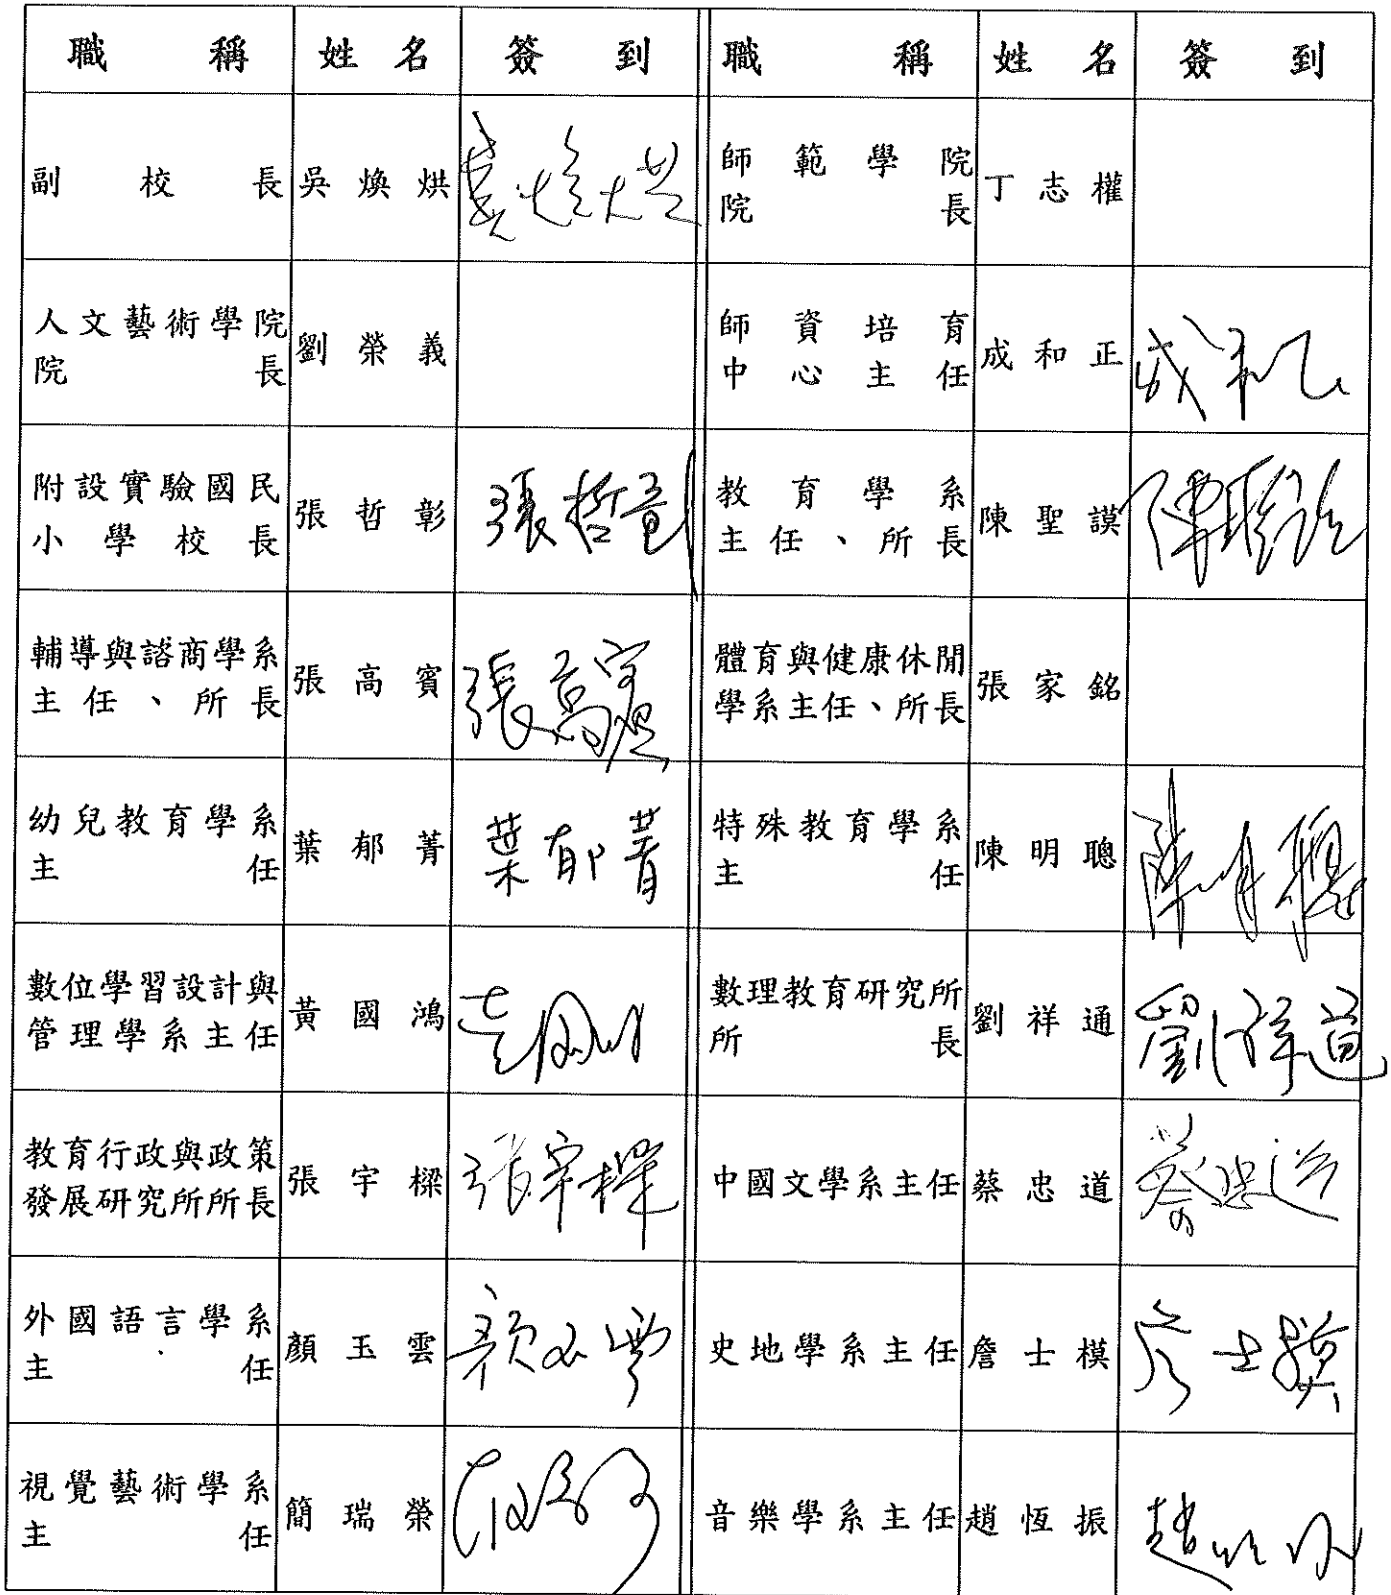 職稱 姓名 簽到 職稱 姓名 簽到
副校長 吳煥烘 師範學院院長 丁志權
人文藝術學院院長 劉榮義 師資培育中心主任 成和正 成和正
附設實驗國民小學校長 張哲彰 張哲彰 教育學系主任、所長 陳聖謨
輔導與諮商學系主任、所長 張高賓 張高賓 體育與健康休閒學系主任、所長 張家銘
幼兒教育學系主任 葉郁菁 葉郁菁 特殊教育學系主任 陳明聰 陳明聰
數位學習設計與管理學系主任 黃國鴻 數理教育研究所所長 劉祥通 劉祥通
教育行政與政策發展研究所所長 張宇樑 張宇樑 中國文學系主任 蔡忠道 蔡忠道
外國語言學系主任 顏玉雲 顏玉雲 史地學系主任 詹士模 詹士模
視覺藝術學系主任 簡瑞榮 音樂學系主任 趙恆振